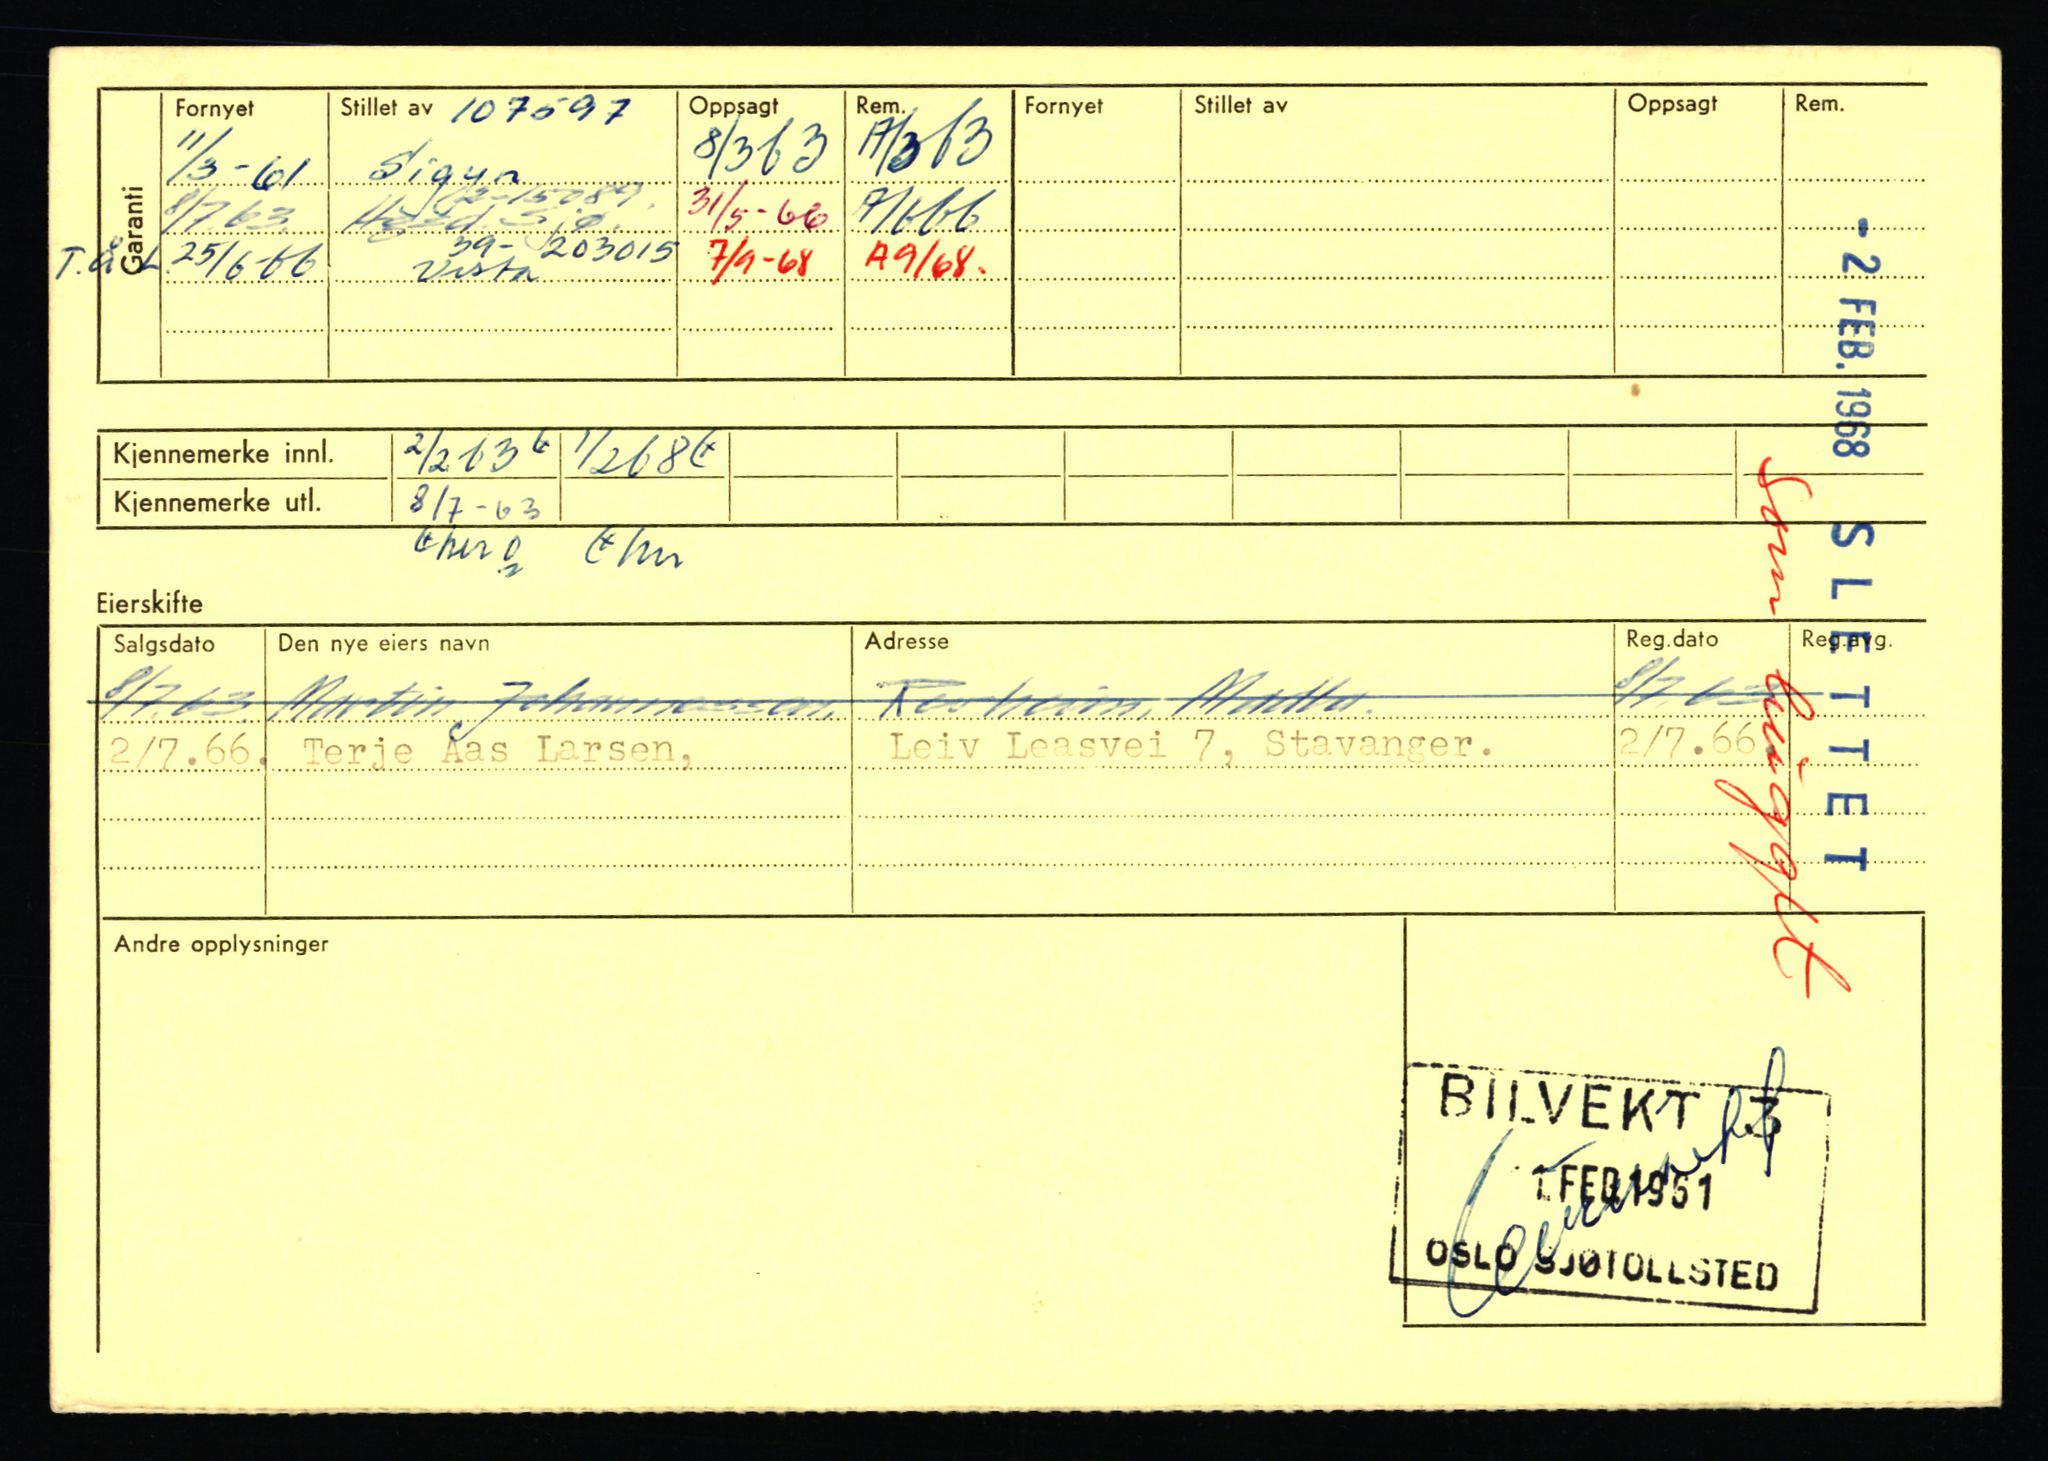 Garanti
Fornyet Stillet av 107597 Oppsagt Rem. Fornyet Stillet av Oppsagt Rem.
11/3-61 Sigyn 8/3 63 A/3 63
8/7.63. 31/5-66 A/6 66
T.Å.L. 25/6-66 39-203015 Vesta 7/9-68 A9/68.
Kjennemerke innl. 2/2 63 1/2 68
Kjennemerke utl. 8/7-63
Eierskifte
Salgsdato Den nye eiers navn Adresse Reg.dato Reg.avg.
8/7.63. Martin Johannessen, 8/7.63
2/7.66. Terje Aas Larsen, Leiv Leasvei 7, Stavanger. 2/7.66.
Andre opplysninger
- 2 FEB. 1968 SLETTET
Som hugget
BILVEKT 3
1 FEB 1961
OSLO SJØTOLLSTED